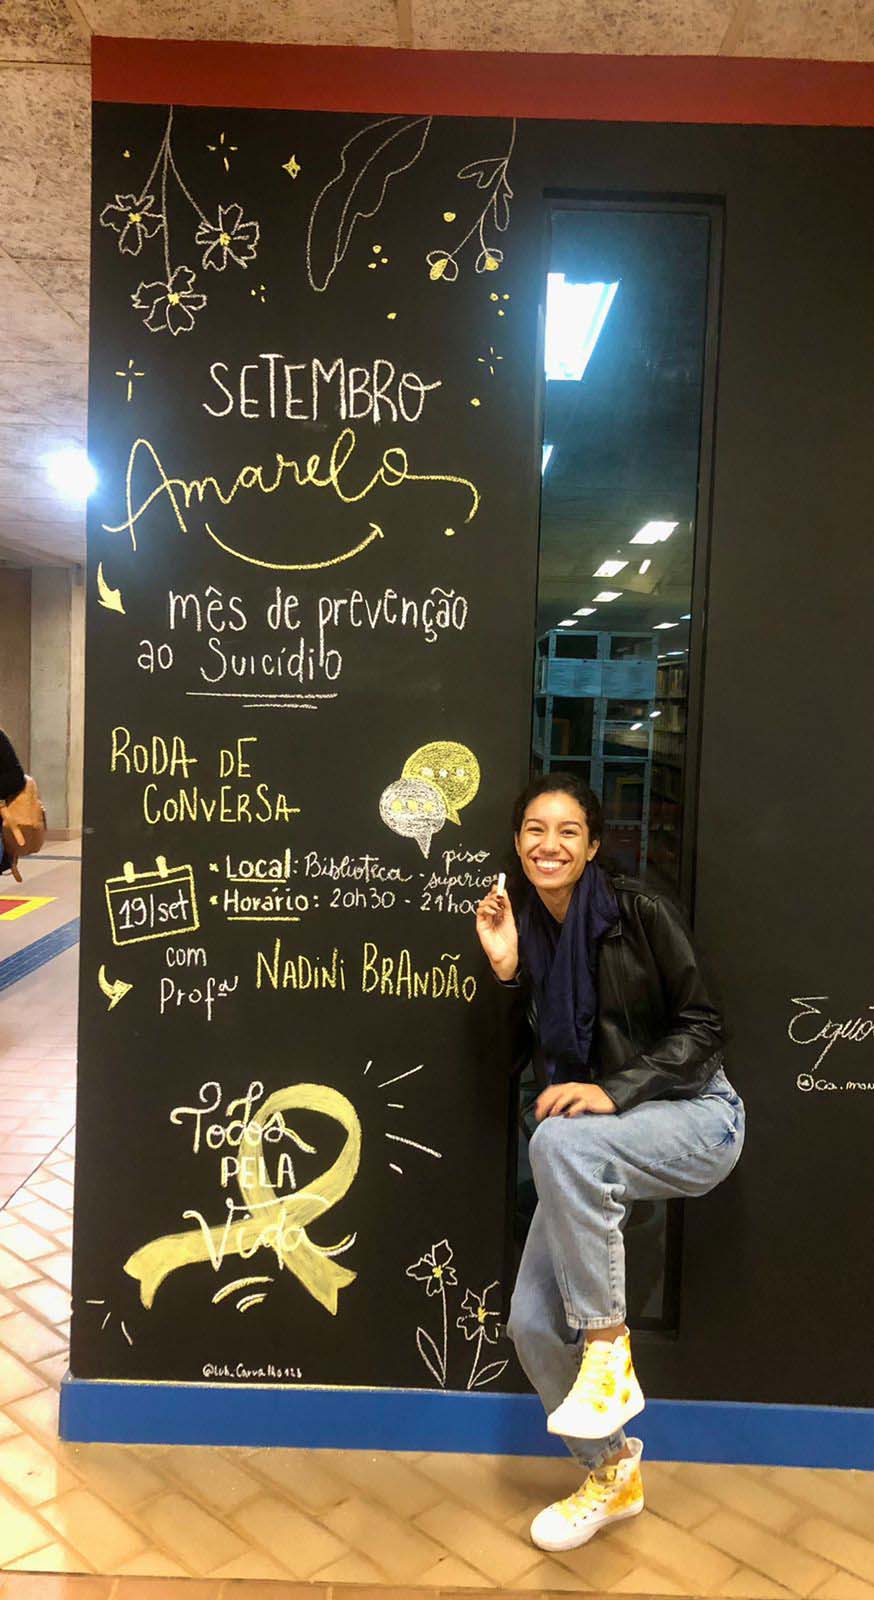 SETEMBRO
Amarelo
mês de prevenção
ao Suicídio
RODA DE
CONVERSA
19/set
• Local: Biblioteca - piso
superior
• Horário: 20h30 - 21ho
com
Profª NADINI BRANDÃO
Todos
PELA
Vida
@luh_Carvalho123